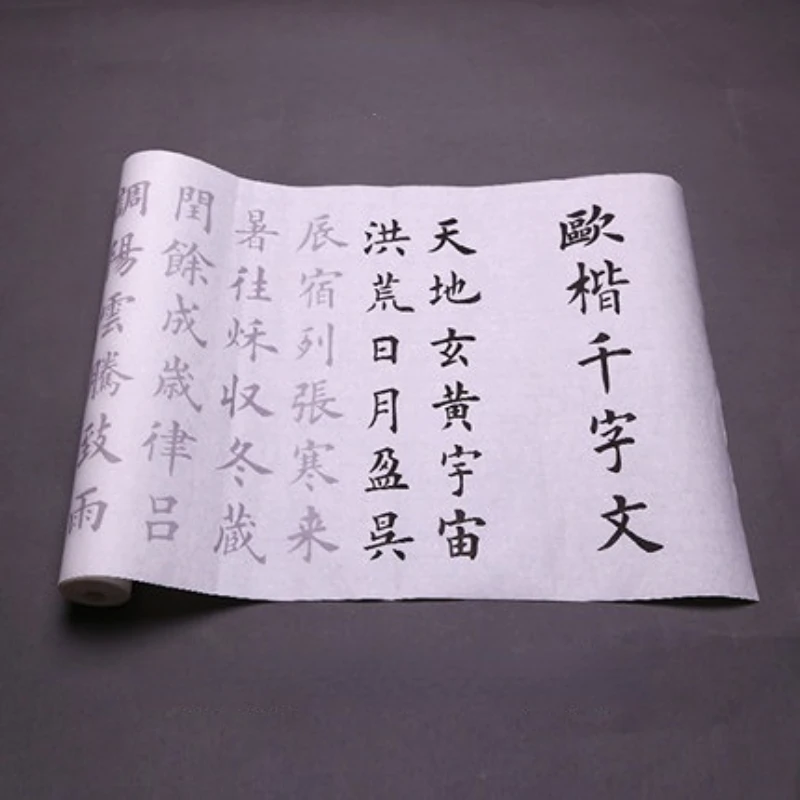 歐楷千字文
天地玄黃宇宙
洪荒日月盈昃
辰宿列張寒来
暑往秌収冬蔵
閏餘成歲律吕
調陽雲騰致雨